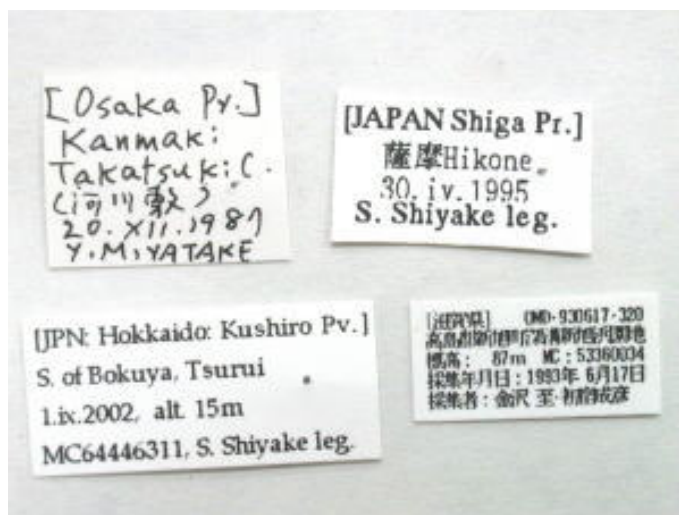 [Osaka Pr.]
Kanmaki
Takatsuki C.
(河川敷)
20.XII.1987
Y.MIYATAKE
[JAPAN Shiga Pr.]
薩摩Hikone.
30.iv.1995
S. Shiyake leg.
[JPN: Hokkaido: Kushiro Pv.]
S. of Bokuya, Tsurui
1.ix.2002, alt. 15m
MC64446311, S. Shiyake leg.
[滋賀県] OMD-930617-320
標高: 87m MC:53360034
採集年月日:1993年 6月17日
採集者:金沢 至